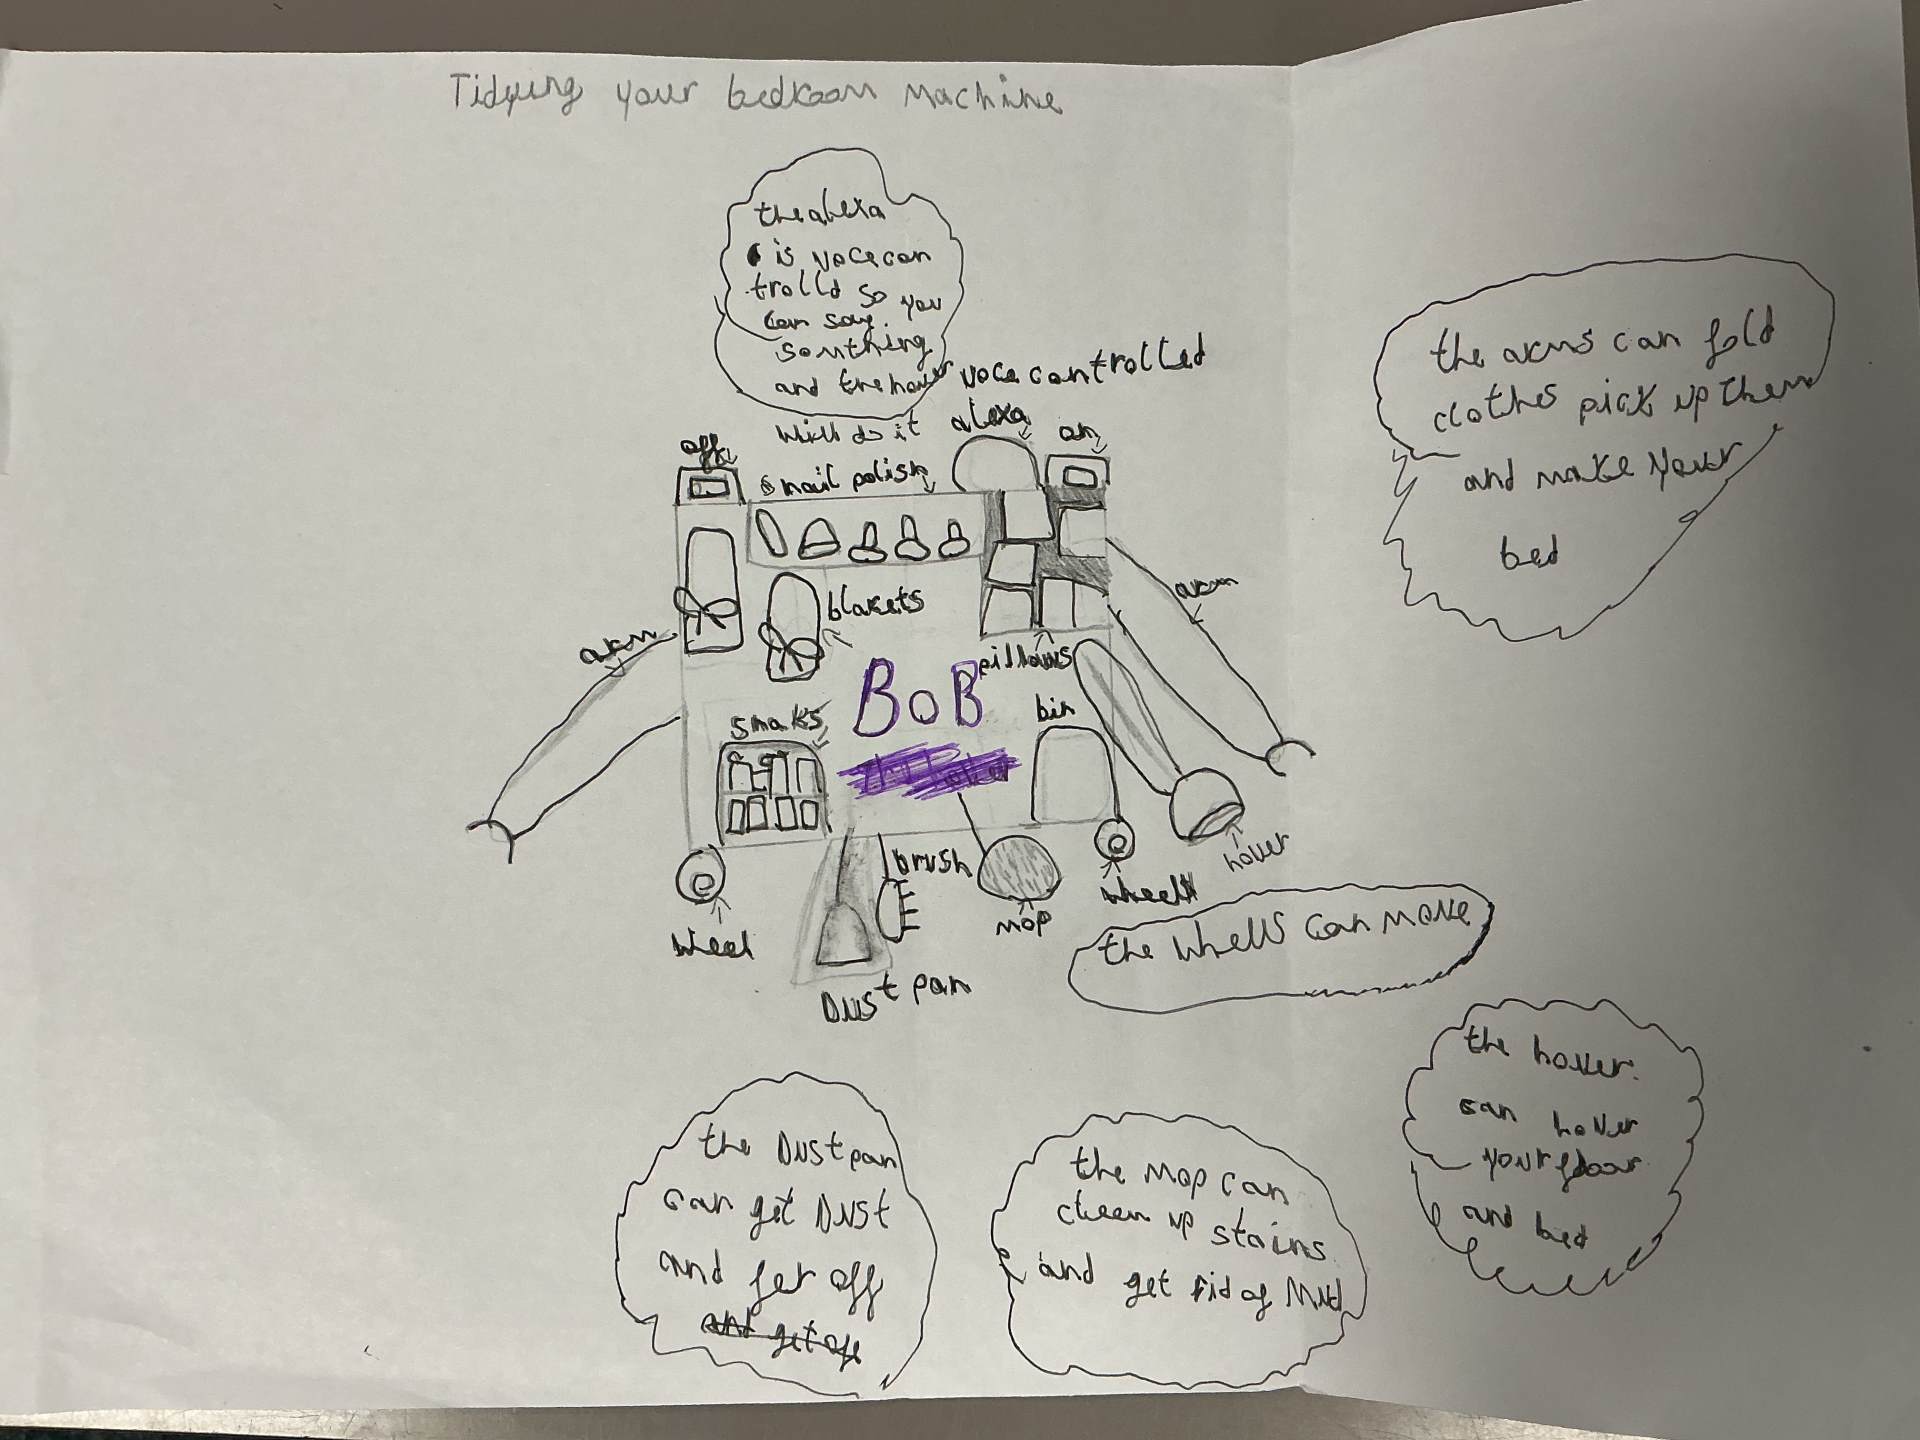 Tidying your bedroom machine
the alexa
is voce con
trolld so you
can say. you
somthing
and the hover
will do it
voce controlled
alexa
on
off
nail polish
the arms can fold
clothes pick up them
and make your
bed
arm
arm
blakets
pillows
BoB
bin
snaks
hover
brush
mop
wheel
wheel
Dust pan
the whells can move
the hover.
can hover
your floor
and bed
the Dust pan
can get Dust
and fer off
and get off
the mop can
cleen up stains
and get rid of Mud